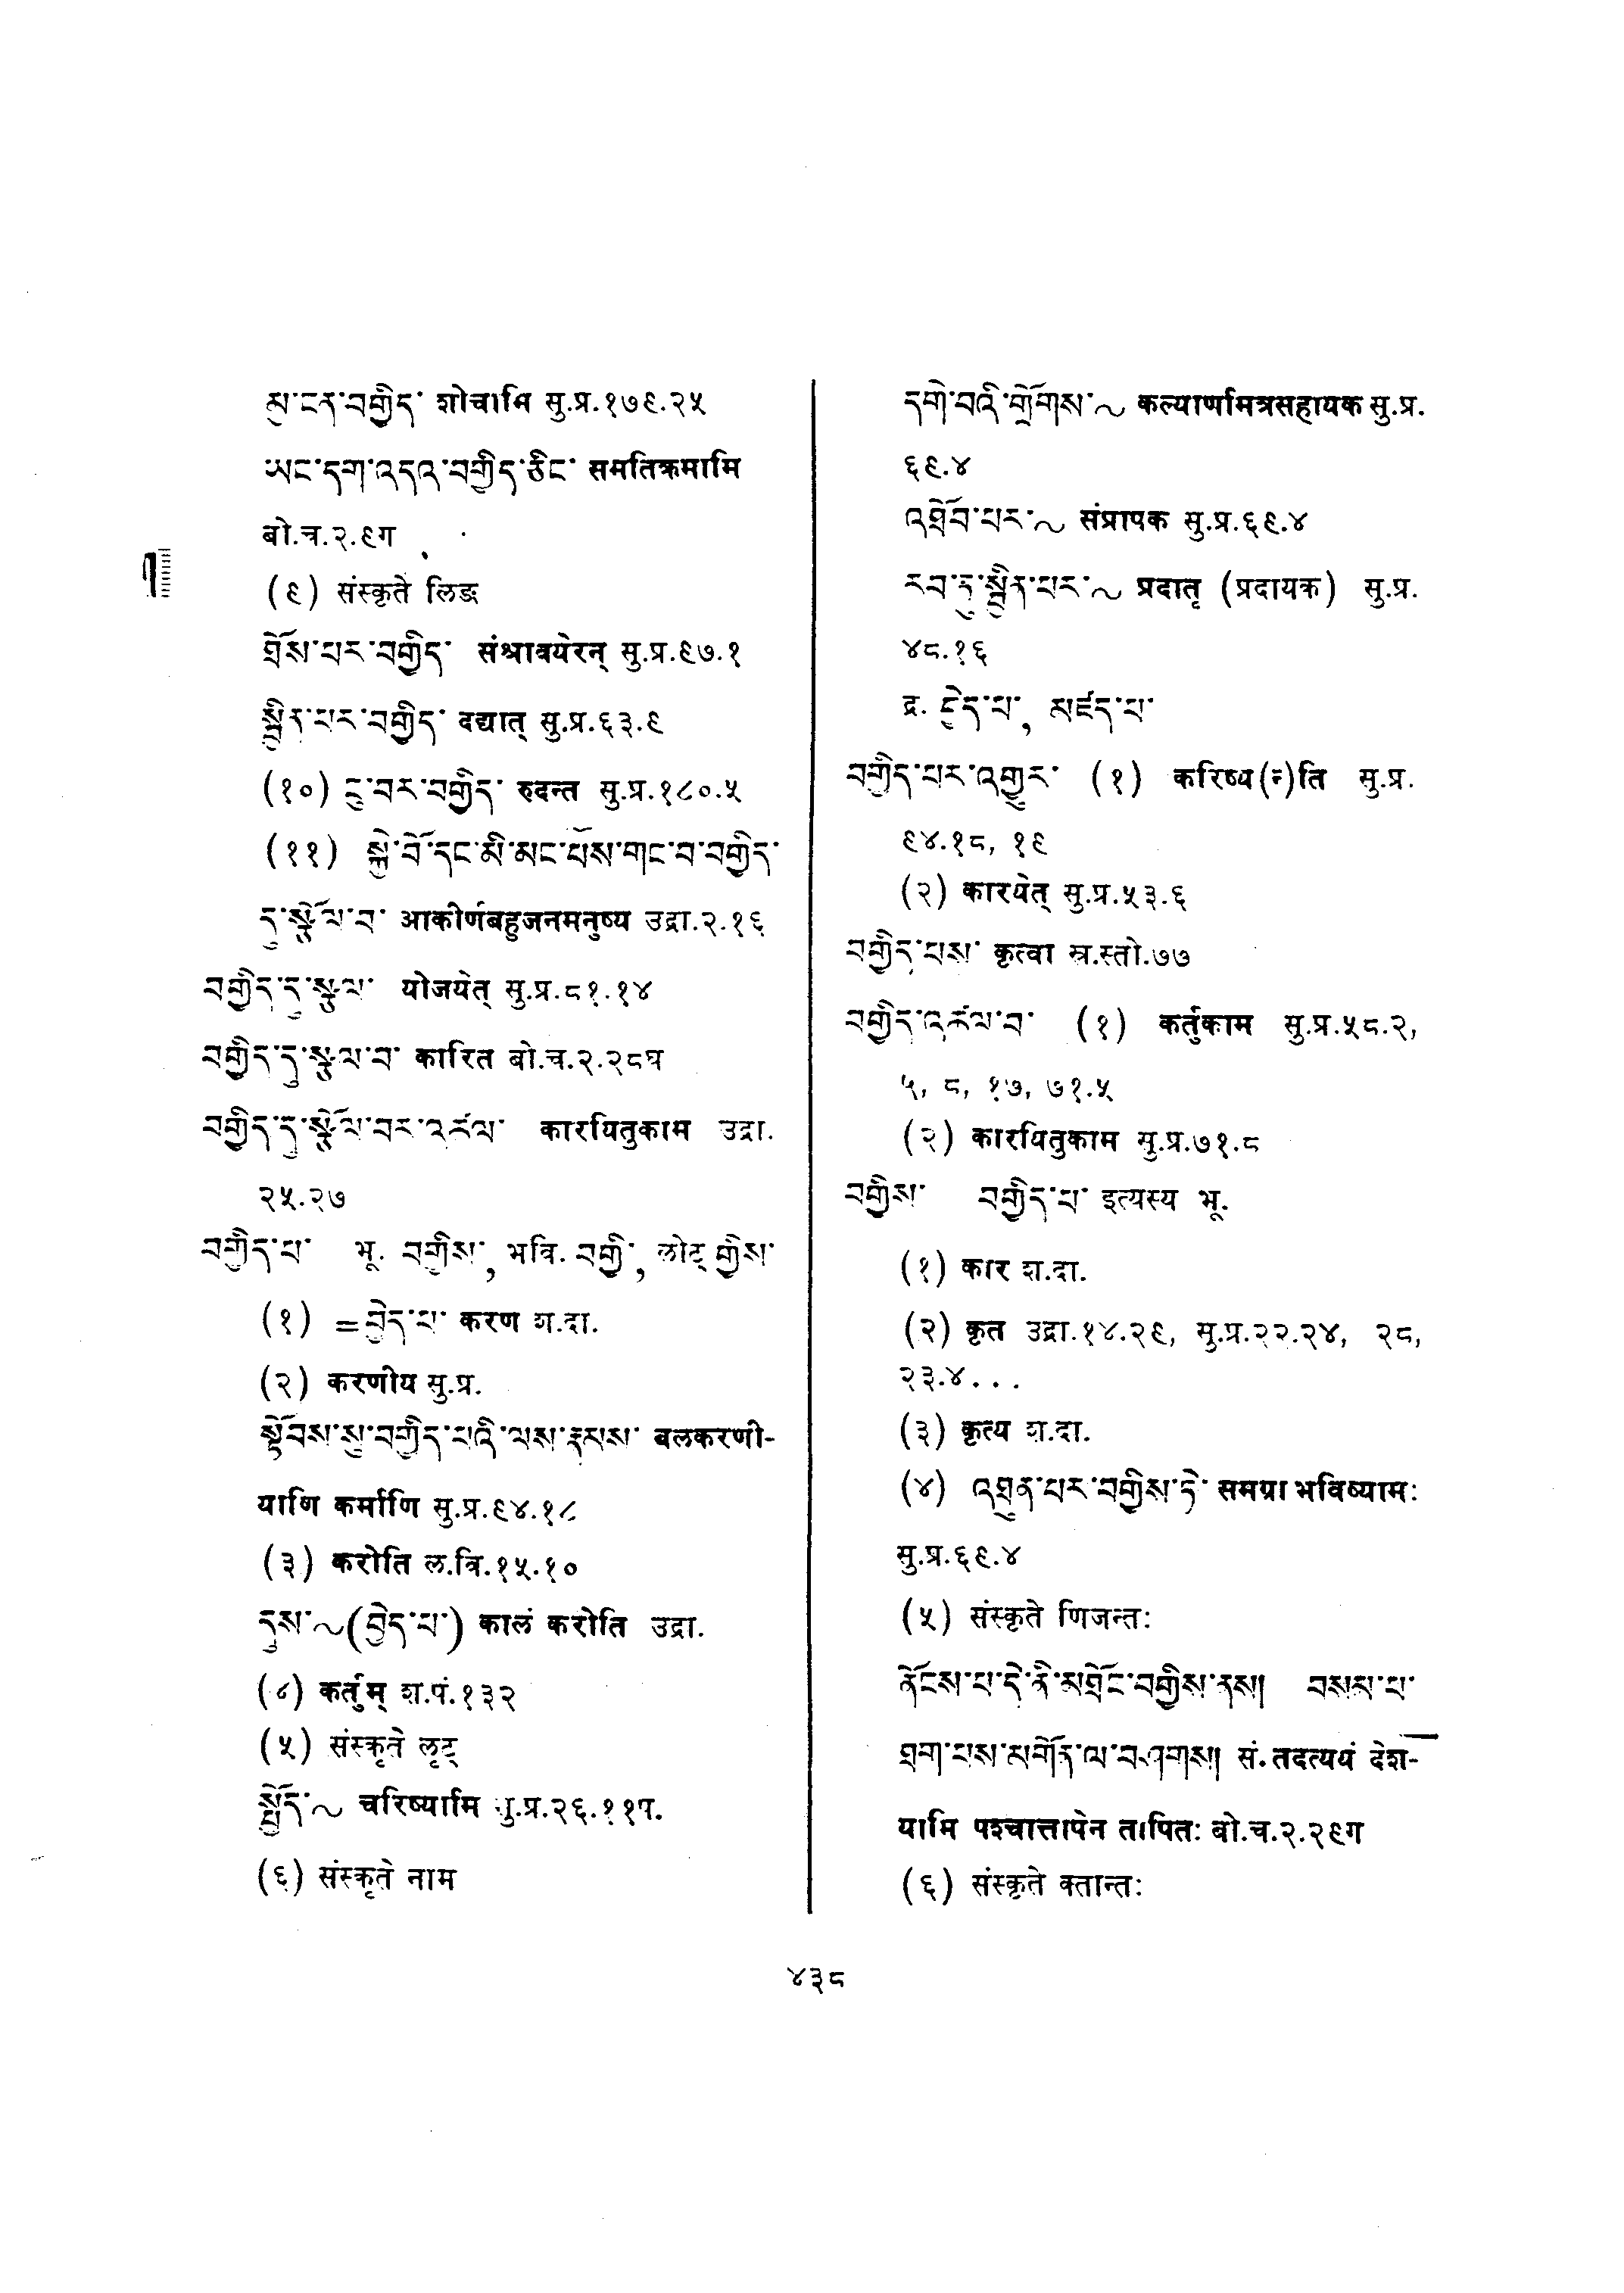 མྱ་ངན་བགྱིད་ शोचामि सु.प्र.१७९.२५
ཡང་དག་འདའ་བགྱིད་ཅིང་ समतिक्रमामि
बो.च.२.९ग
(९) संस्कृते लिङ
ཐོས་པར་བགྱིད་ संश्रावयेरन् सु.प्र.९७.१
སྦྱིན་པར་བགྱིད་ दद्यात् सु.प्र.६३.९
(१०) ངུ་བར་བགྱིད་ रुदन्त सु.प्र.१८०.५
(११) སྐྱེ་བོ་དང་མི་མང་པོས་གང་བ་བགྱིད་
དུ་སྩོལ་བ་ आकीर्णबहुजनमनुष्य उद्रा.२.१६
བགྱིད་དུ་སྩལ་ योजयेत् सु.प्र.८१.१४
བགྱིད་དུ་སྩལ་བ་ कारित बो.च.२.२८घ
བགྱིད་དུ་སྩོལ་བར་འཚལ་ कारयितुकाम उद्रा.
२५.२७
བགྱིད་པ་ भू. བགྱིས་, भवि. བགྱི་, लोट् གྱིས་
(१) =བྱེད་པ་ करण श.दा.
(२) करणीय सु.प्र.
སྟོབས་སུ་བགྱིད་པའི་ལས་རྣམས་ बलकरणी-
याणि कर्माणि सु.प्र.९४.१८
(३) करोति ल.वि.१५.१०
དུས་~(བྱེད་པ་) कालं करोति उद्रा.
(४) कर्तुम् श.पं.१३२
(५) संस्कृते लृट्
སྤྱོད་~ चरिष्यामि सु.प्र.२६.११प.
(६) संस्कृते नाम
དགེ་བའི་གྲོགས་~ कल्याणमित्रसहायक सु.प्र.
६९.४
འཐོབ་པར་~ संप्रापक सु.प्र.६९.४
རབ་ཏུ་སྦྱིན་པར་~ प्रदातृ (प्रदायक) सु.प्र.
४८.१६
द्र. བྱེད་པ་, མཛད་པ་
བགྱིད་པར་འགྱུར་ (१) करिष्य(न्)ति सु.प्र.
९४.१८, १९
(२) कारयेत् सु.प्र.५३.६
བགྱིད་པས་ कृत्वा स्र.स्तो.७७
བགྱིད་འཚལ་བ་ (१) कर्तुकाम सु.प्र.५८.२,
५, ८, १७, ७१.५
(२) कारयितुकाम सु.प्र.७१.८
བགྱིས་ བགྱིད་པ་ इत्यस्य भू.
(१) कार श.दा.
(२) कृत उद्रा.१४.२९, सु.प्र.२२.२४, २८,
२३.४...
(३) कृत्य श.दा.
(४) འཐུན་པར་བགྱིས་ཏེ་ समग्रा भविष्यामः
सु.प्र.६९.४
(५) संस्कृते णिजन्तः
ནོངས་པ་དེ་ནི་མཐོང་བགྱིས་ནས། བསམ་པ་
ཐག་པས་མགོན་ལ་བཤགས། सं.तदत्ययं देश-
यामि पश्चात्तापेन तापितः बो.च.२.२९ग
(६) संस्कृते क्तान्तः
४३८